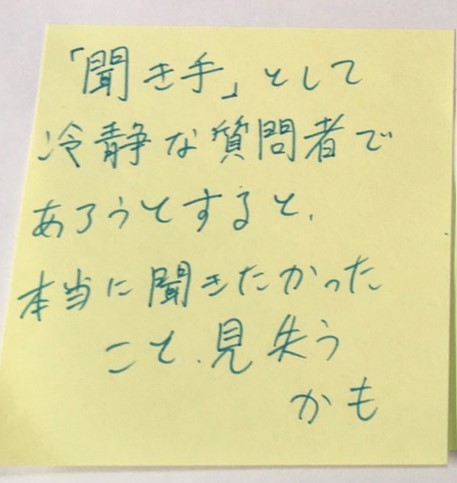 「聞き手」として
冷静な質問者で
あろうとすると、
本当に聞きたかった
こと、見失う
かも